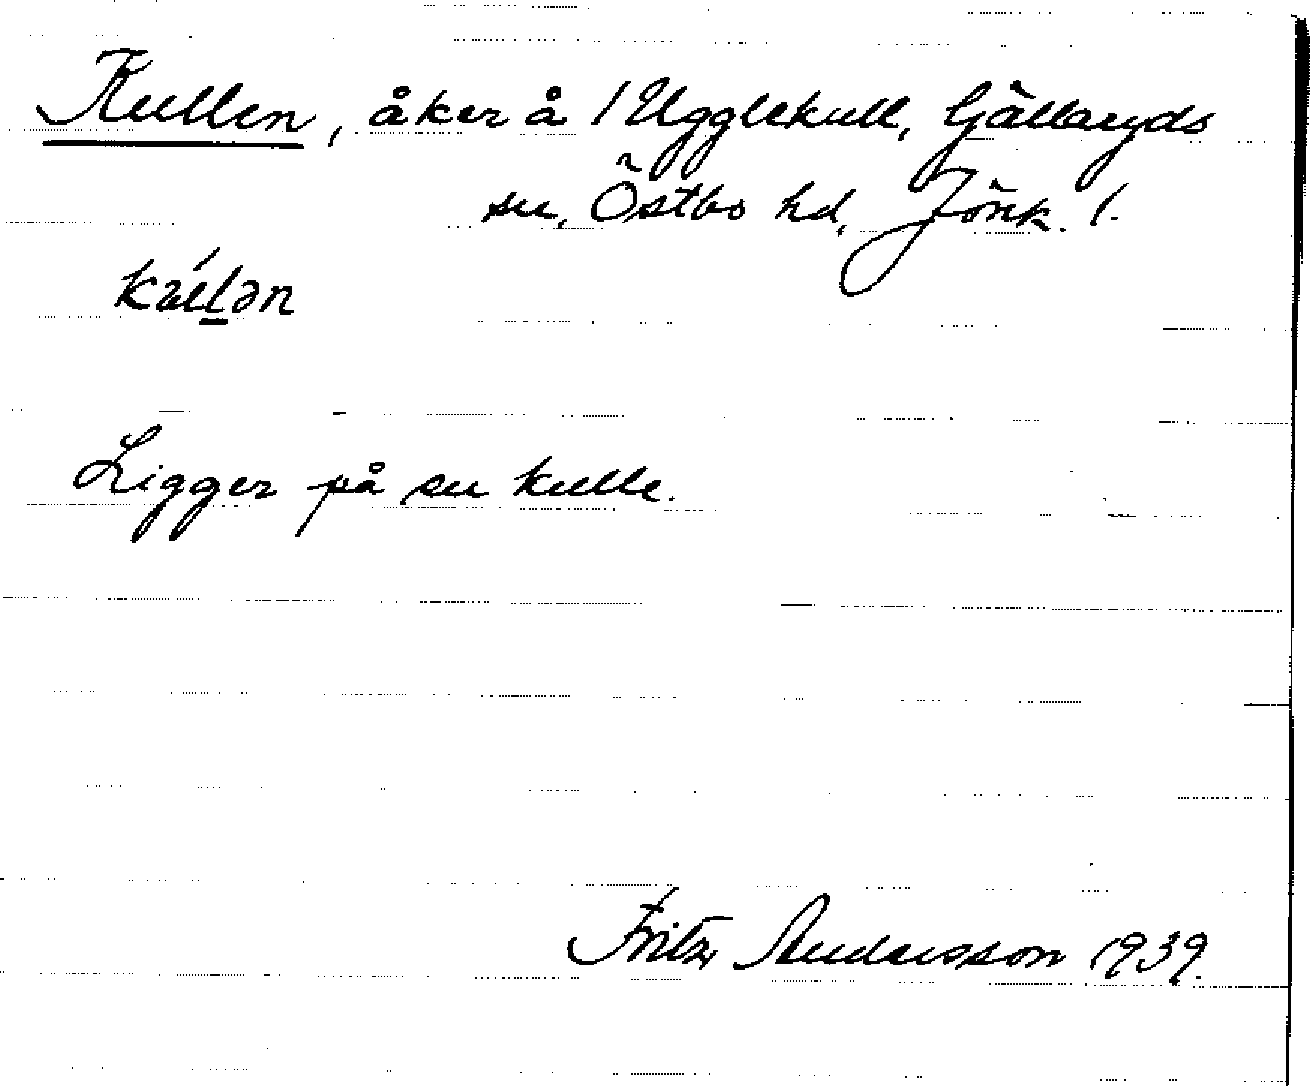 Kullen, åker å 1 Ugglekull, Gällaryds
sn, Östbo hd, Jönk. l.
Ligger på en kulle.
Fritz Andersson 1939.